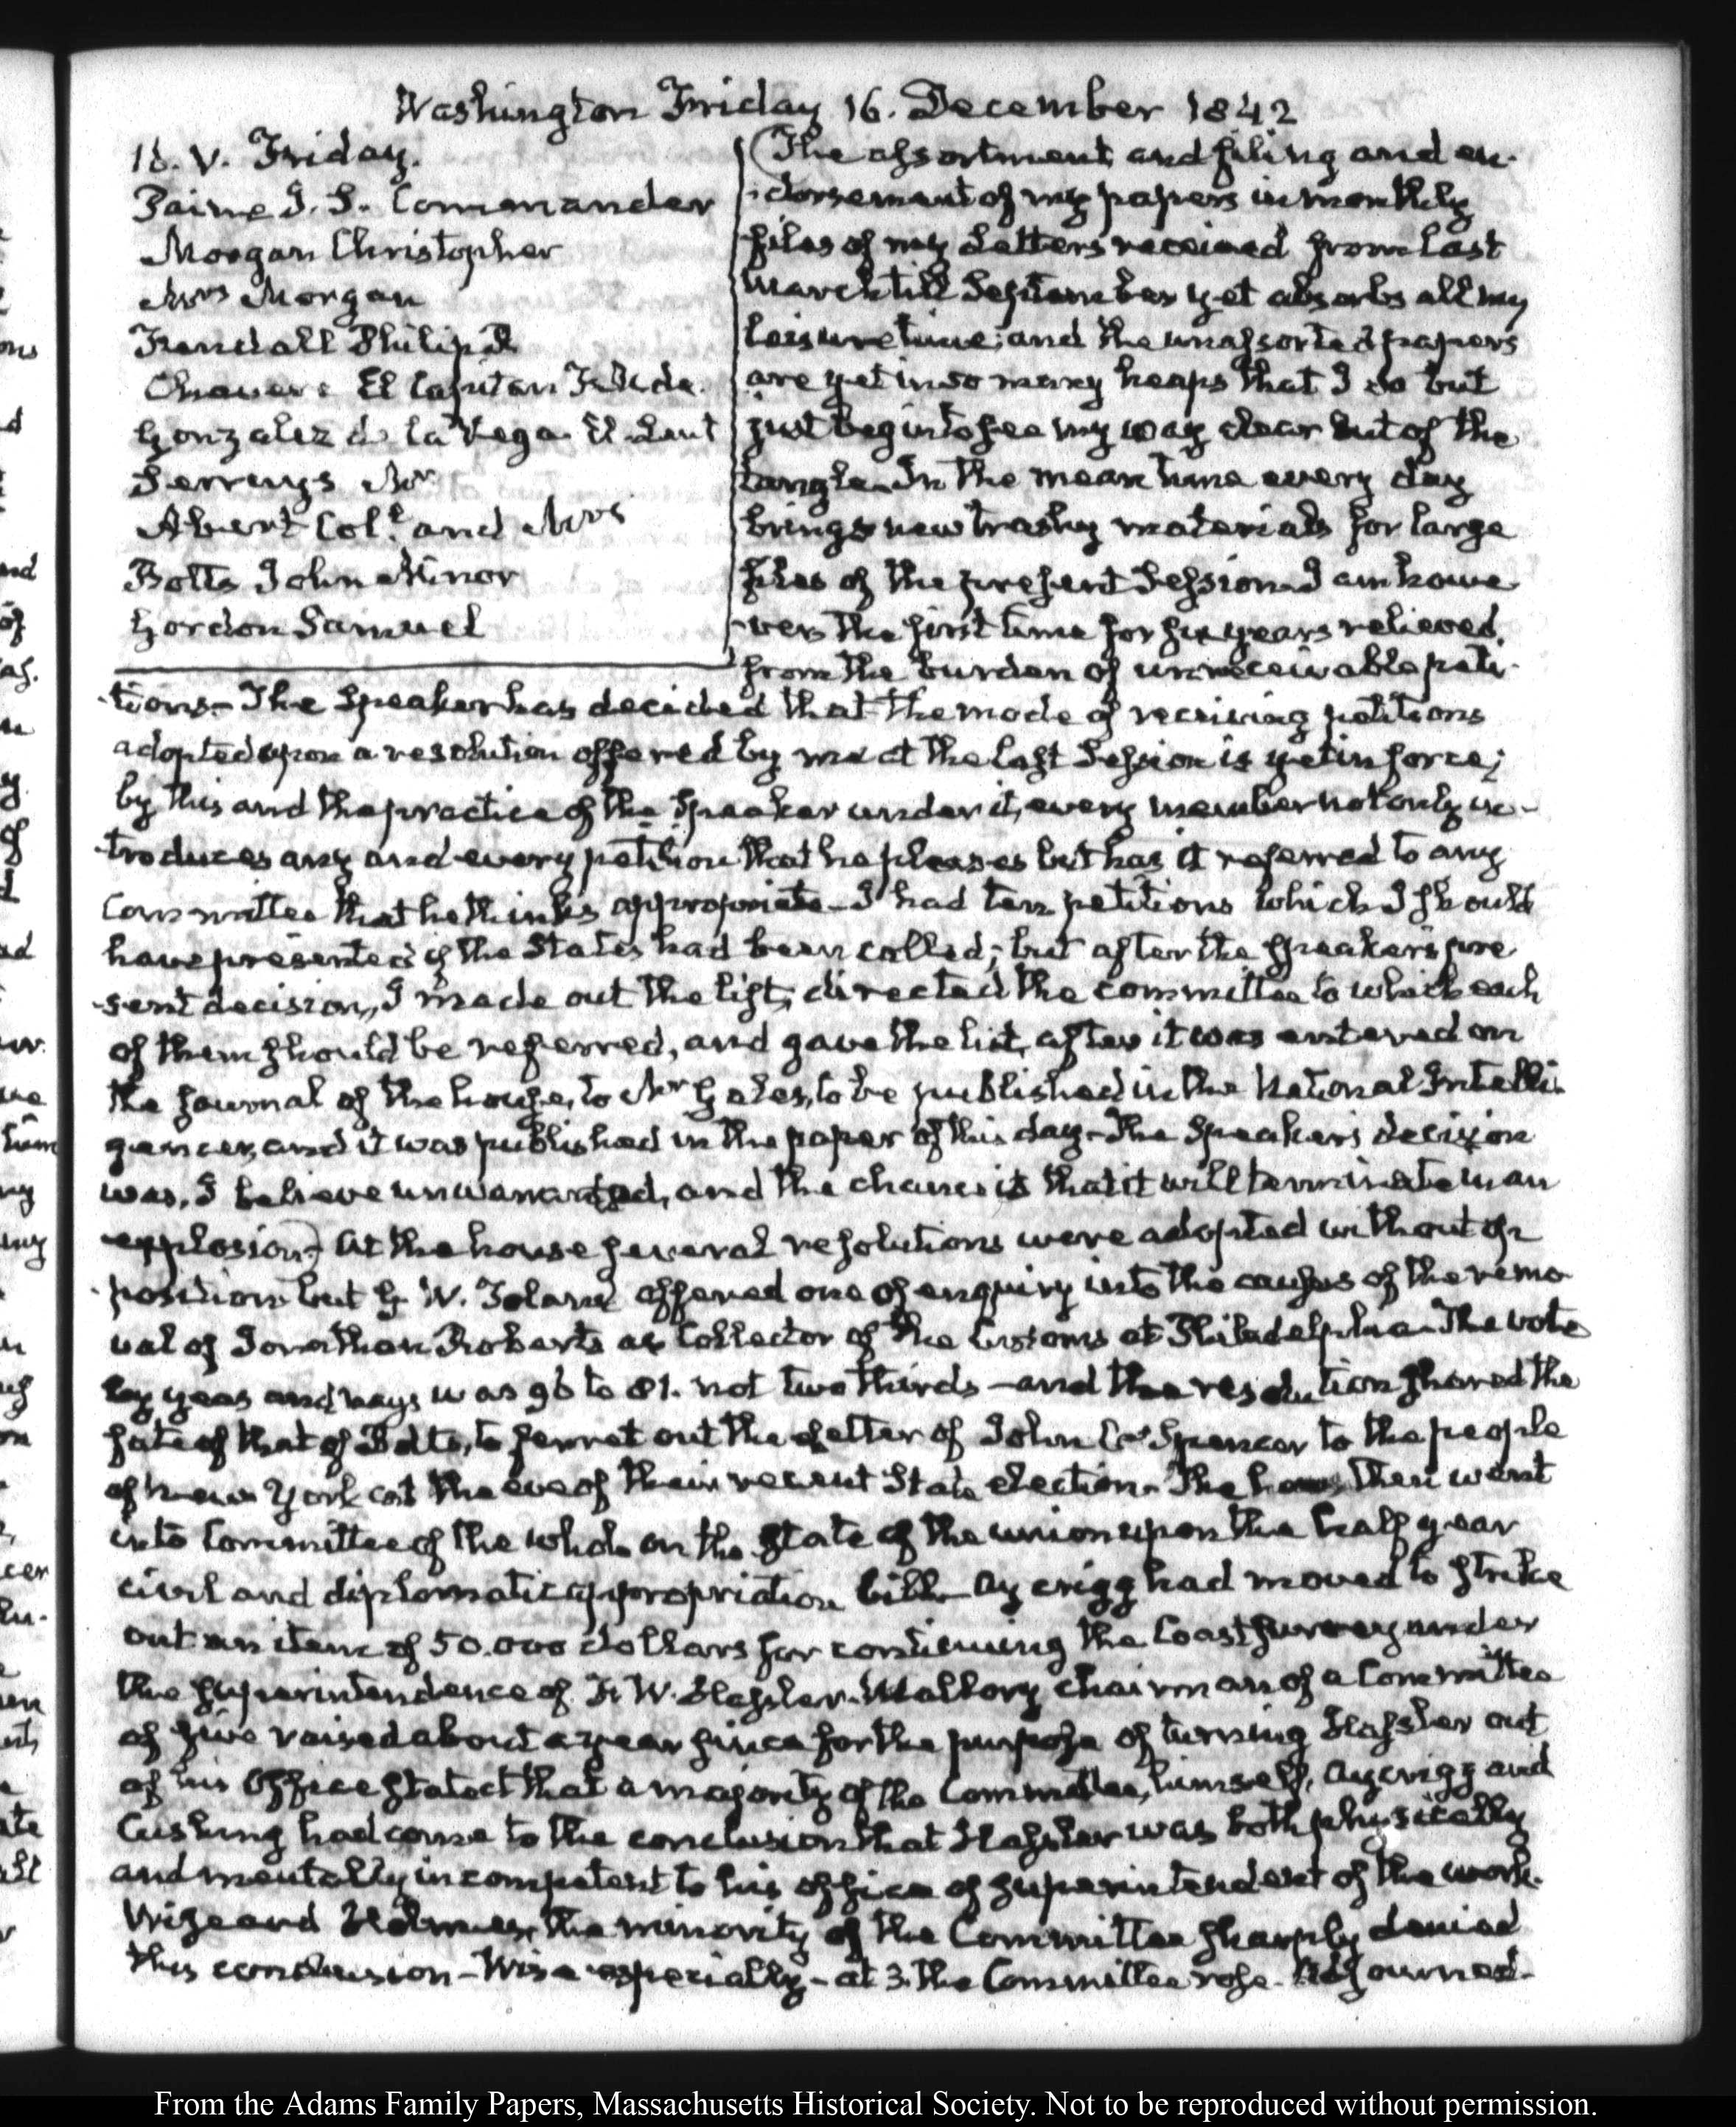 Washington Friday 16. December 1842
16. V. Friday.
Paine J. S. Commander
Morgan Christopher
Mrs Morgan
Frendall Philip R
El Capitan
Gonzalez de la Vega El Lieut
Serruys Mr
Abert Col. and Mrs
Botts John Minor
Gordon Samuel
The assortment, and filing and en-
-dorsement of my papers in monthly
files of my Letters received from last
March till September yet absorbs all my
leisure time; and the unassorted papers
are yet in so many heaps that I do but
just begin to see my way clear out of the
tangle. In the mean time every day
brings new trashy materials for large
files of the present Session. I am howe
-ver the first time for six years relieved,
from the burden of unreceivable peti-
-tions- The Speaker has decided that the mode of receiving petitions
adopted upon a resolution offered by me at the last Session is yet in force;
by this and the practice of the Speaker under it, every member not only in-
-troduces any and every petition that he pleases but has it referred to any
Committee that he thinks appropriate- I had ten petitions which I should
have presented if the States had been called; but after the Speaker's pre
-sent decision, I made out the list, directed the committee to which each
of them should be referred, and gave the list, after it was entered on
the journal of the house, to Mr Gales, to be published in the National Intelli-
gencer, and it was published in the paper of this day- The Speaker's decision
was, I believe unwarranted, and the chance is that it will terminate in an
explosion) At the house several resolutions were adopted without op
-position but G W. Toland offered one of enquiry into the causes of the remo
val of Jonathan Roberts as Collector of the Customs at Philadelphia- The vote
by yeas and nays was 96 to 81. not two thirds- and the resolution shared the
fate of that of Botts, to ferret out the letter of John C. Spencer to the people
of New York at the eve of their recent State election- The house then went
into Committee of the whole on the State of the union upon the half year
civil and diplomatic appropriation bill- Aycrigg had moved to strike
out an item of 50.000 dollars for continuing the Coast survey under
the superintendence of F. W. Hassler. Mallory chairman of a Committee
of five raised about a year since for the purpose of turning Hassler out
of his Office stated that a majority of the Committee, himself, Aycrigg and
Cushing had come to the conclusion that Hassler was both physically
and mentally incompetent to his office of superintendent of the work.
Wise and Holmes, the minority of the Committee sharply denied
this conclusion- Wise especially- at 3. the Committee rose- Adjourned-
From the Adams Family Papers, Massachusetts Historical Society. Not to be reproduced without permission.